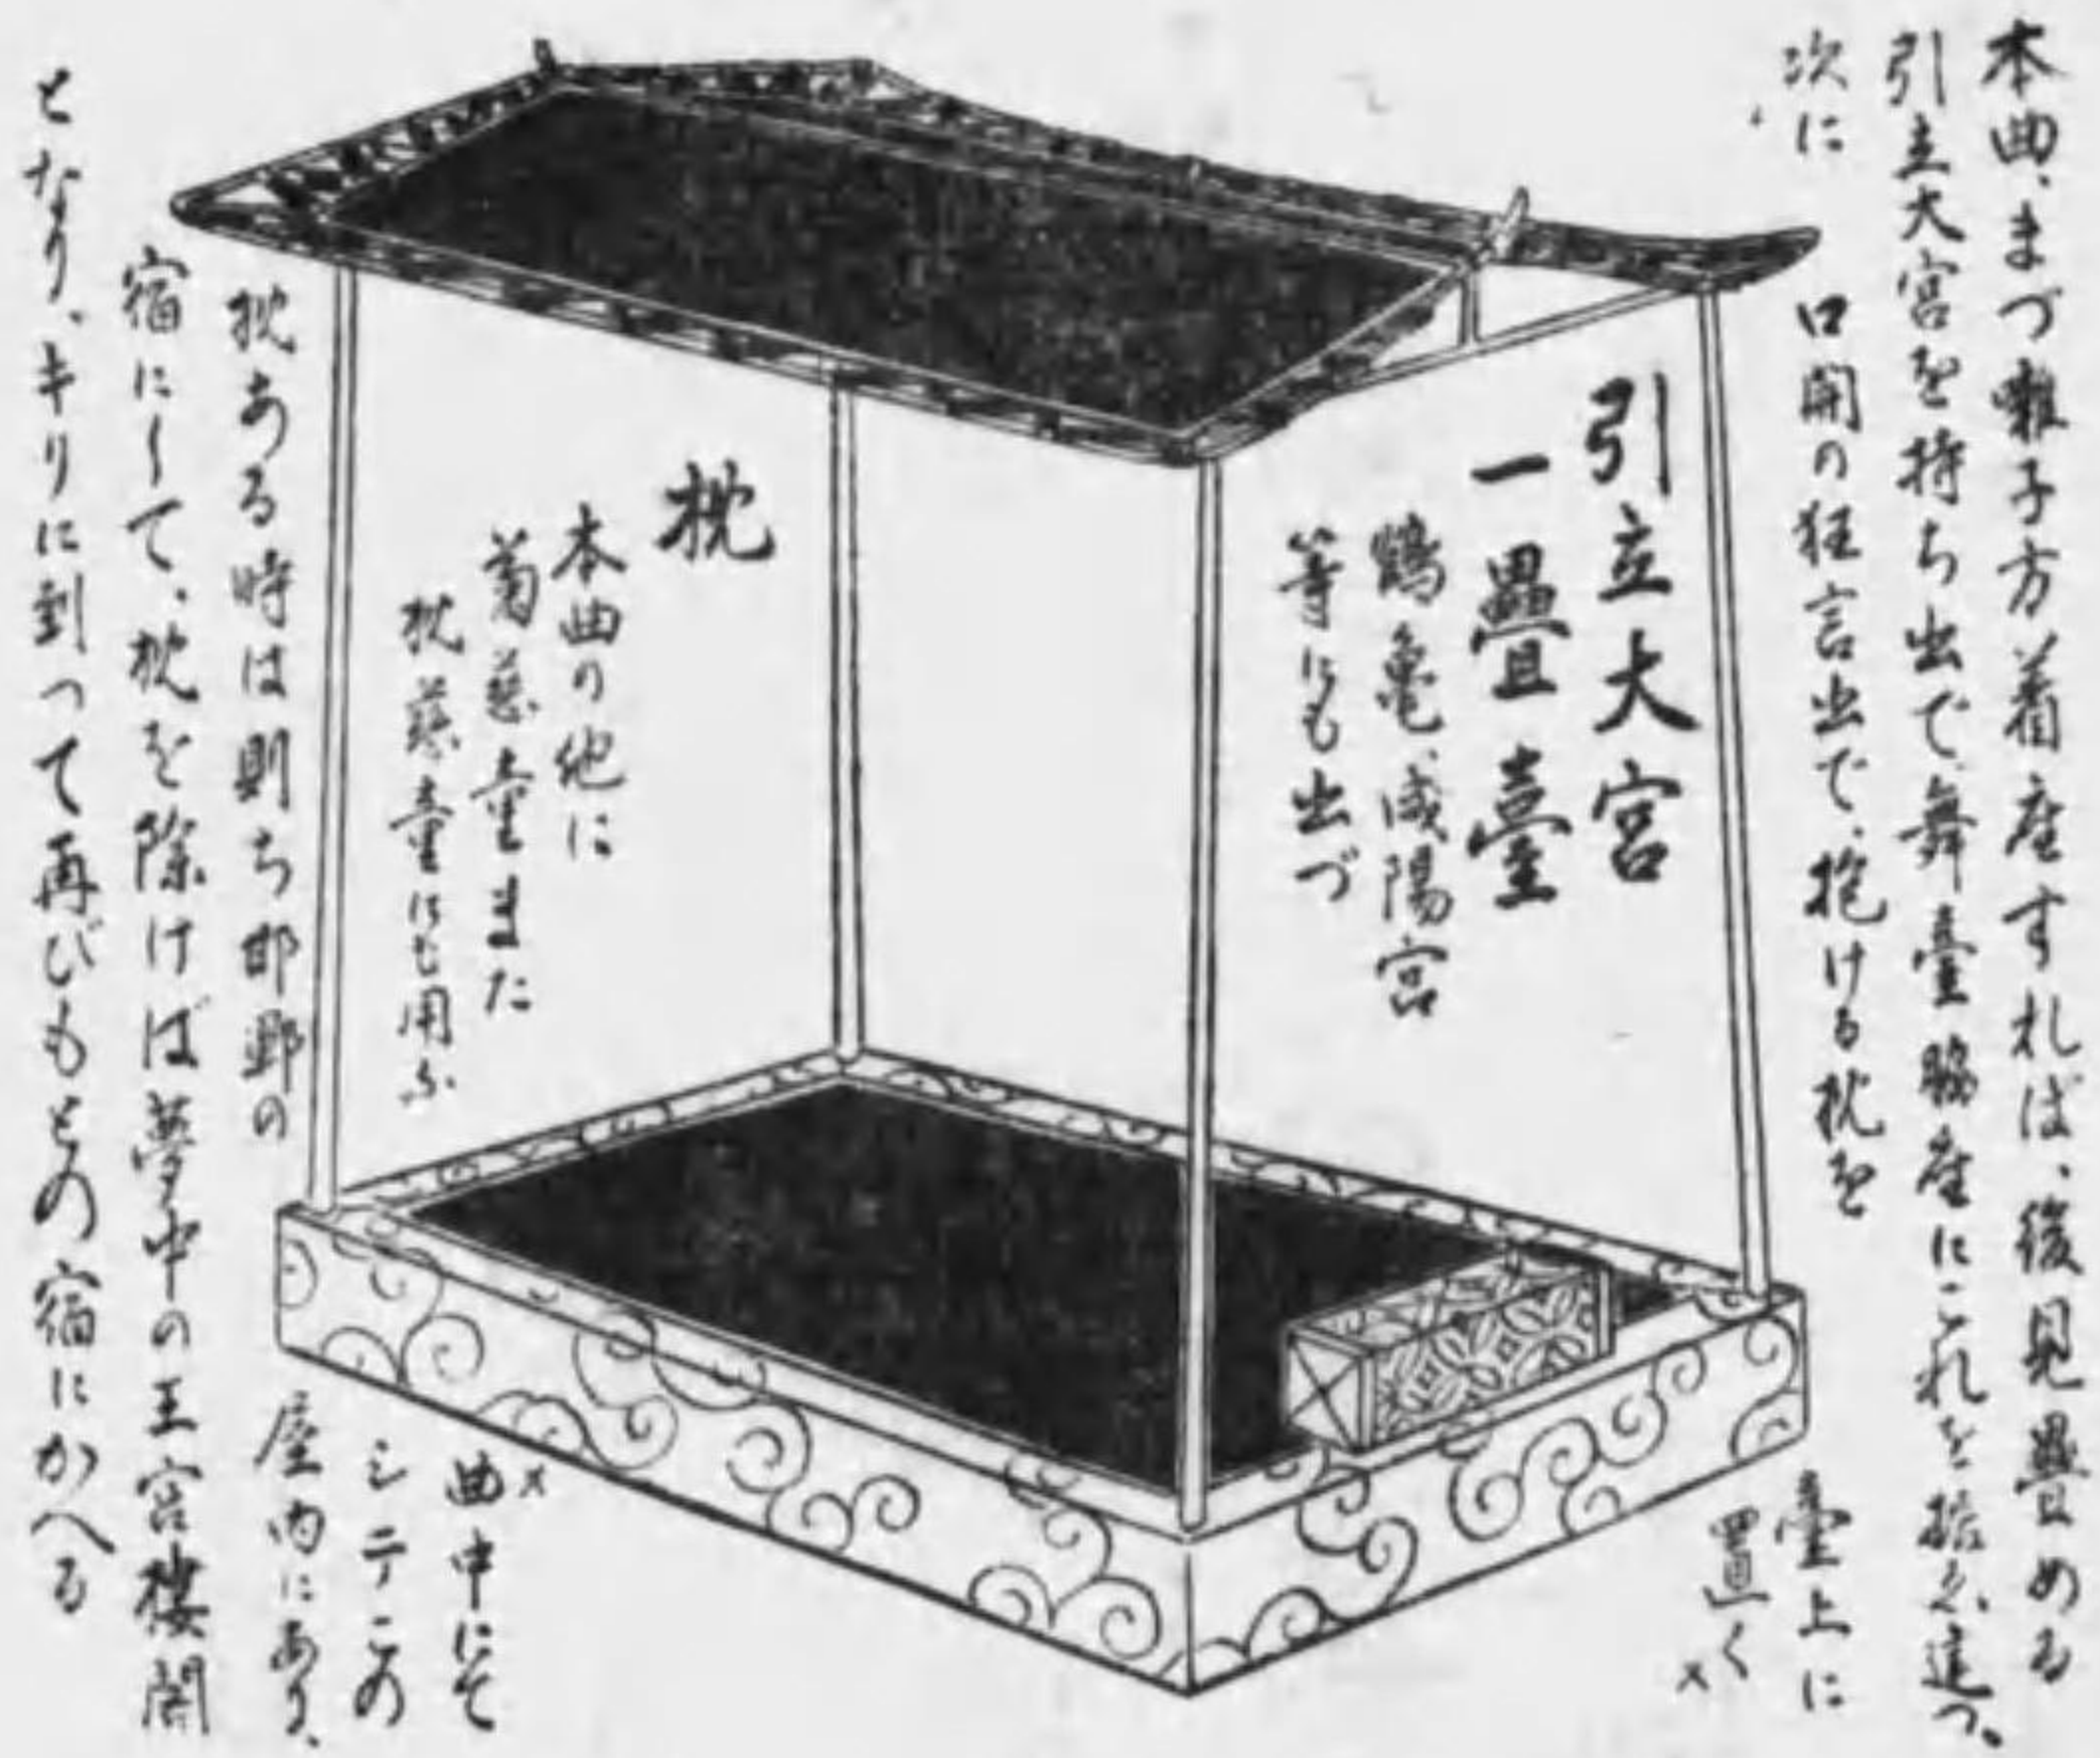 本曲、まづ囃子方着座すれば、後見畳める
引立大宮を持ち出で、舞臺脇座にこれを据ゑ建つ。
次に
口開の狂言出で、抱ける枕を
臺上に
置く×
引立大宮
一疊臺
鶴亀、咸陽宮
等にも出づ
枕
本曲の他に
菊慈童また
枕慈童にも用ふ
×曲中にて
シテこの
屋内にあり、
枕ある時は則ち邯鄲の
宿にして、枕を除けば夢中の王宮樓閣
となり、キリに到つて再びもとの宿にかへる